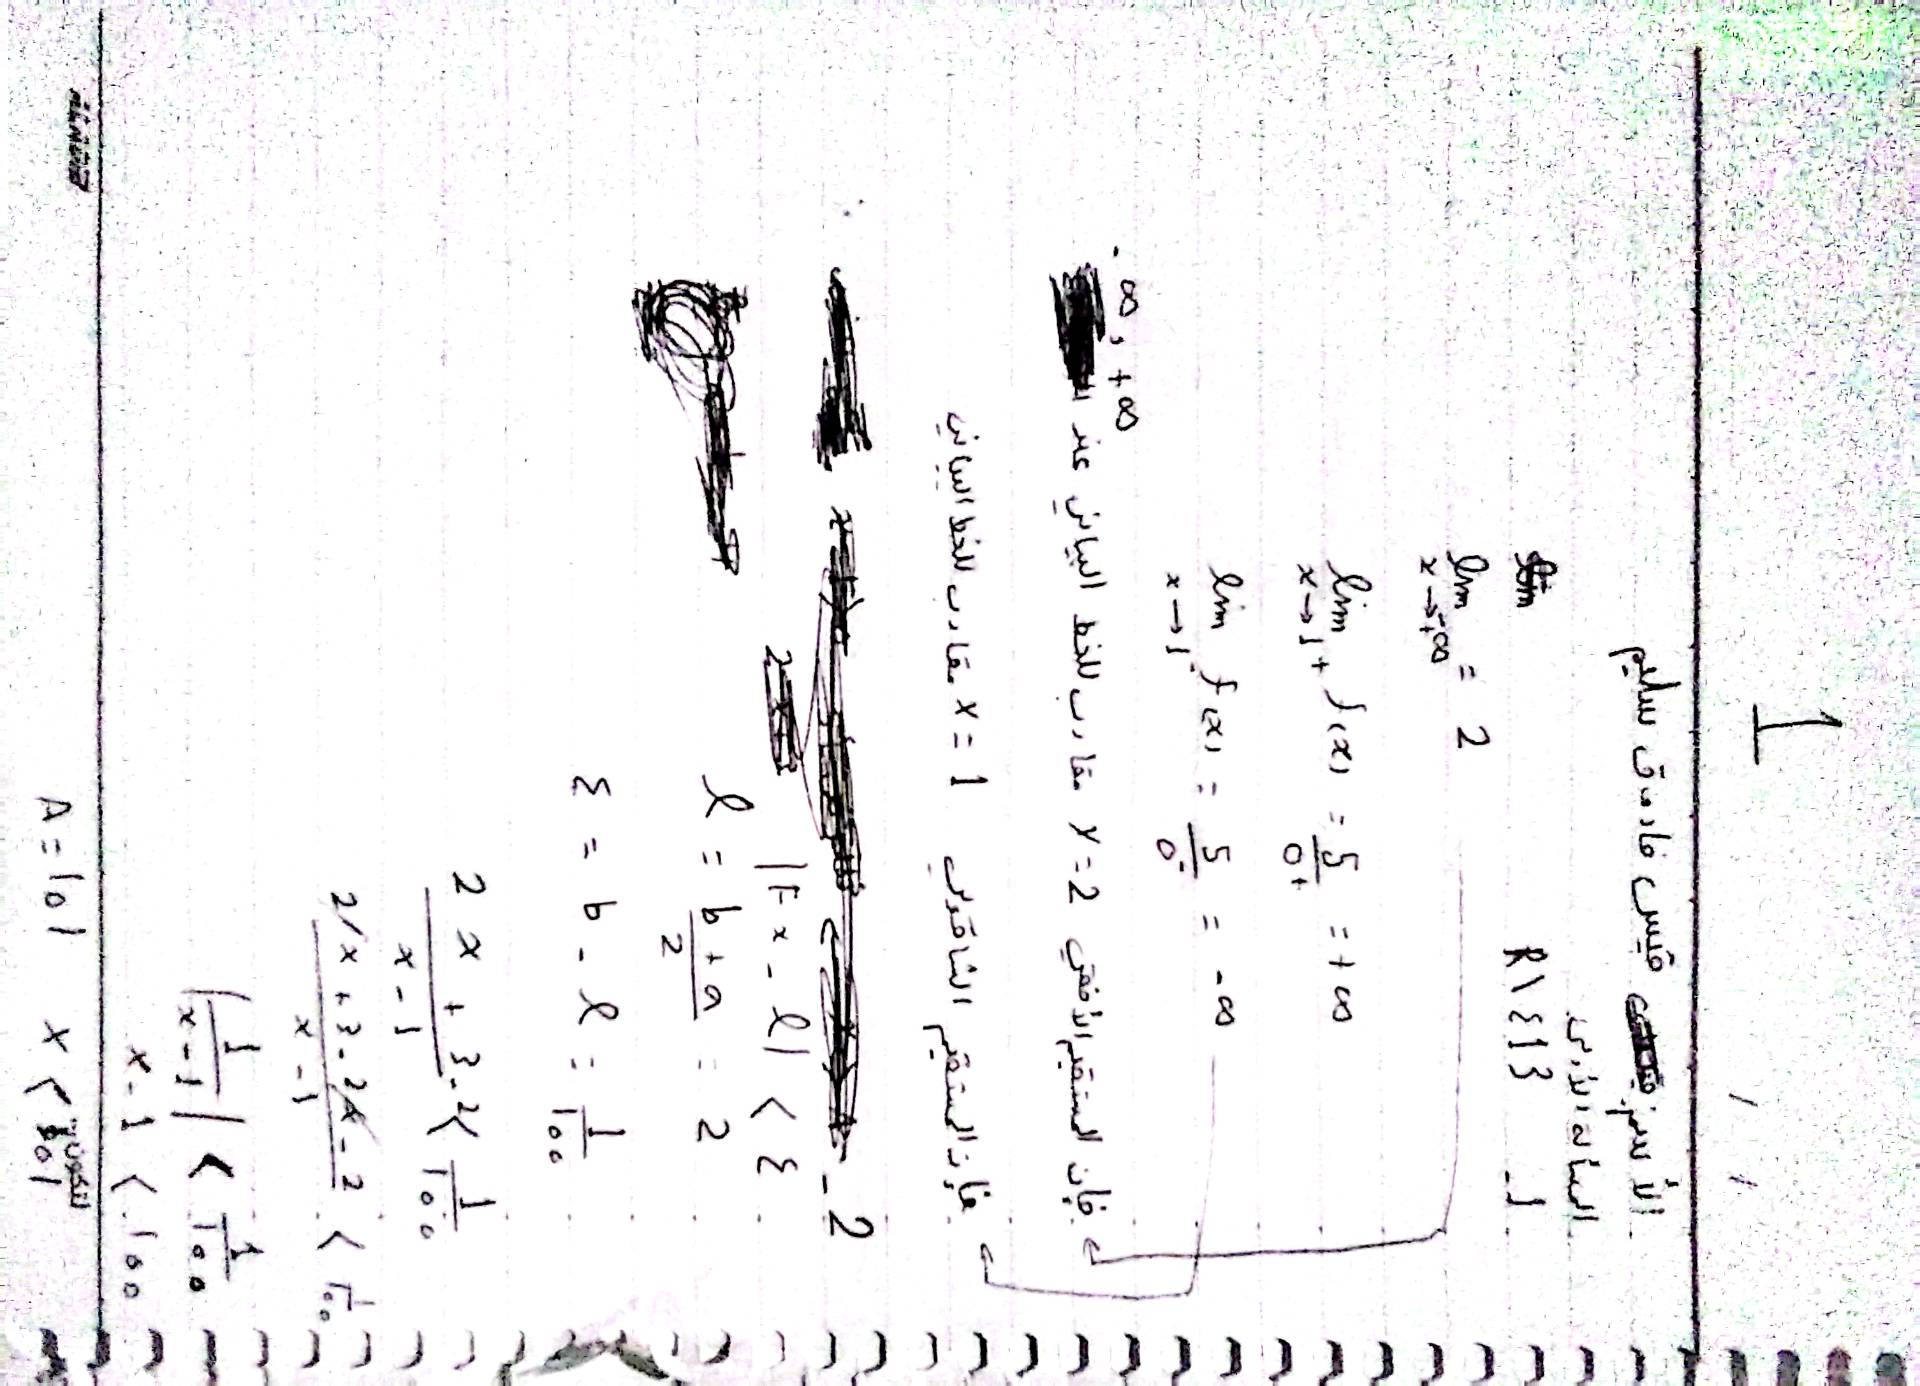 1
/ /
الأسم: قيس فاروق سليم
المسألة الأولى
R\{1} -1
lim = 2
x→+∞
lim f(x) = 5/0+ = +∞
x→1+
lim f(x) = 5/0- = -∞
x→1-
-∞, +∞
فإن المستقيم الأفقي y=2 مقارب للخط البياني عند
فإن المستقيم الشاقولي x=1 مقارب للخط البياني
-2
|Fx - l| < ε
l = b+a/2 = 2
ε = b - l = 1/100
2x+3/x-1 - 2 < 1/100
2x+3-2x-2/x-1 < 1/100
|1/x-1| < 1/100
x-1 < 100
A=101 x < 101